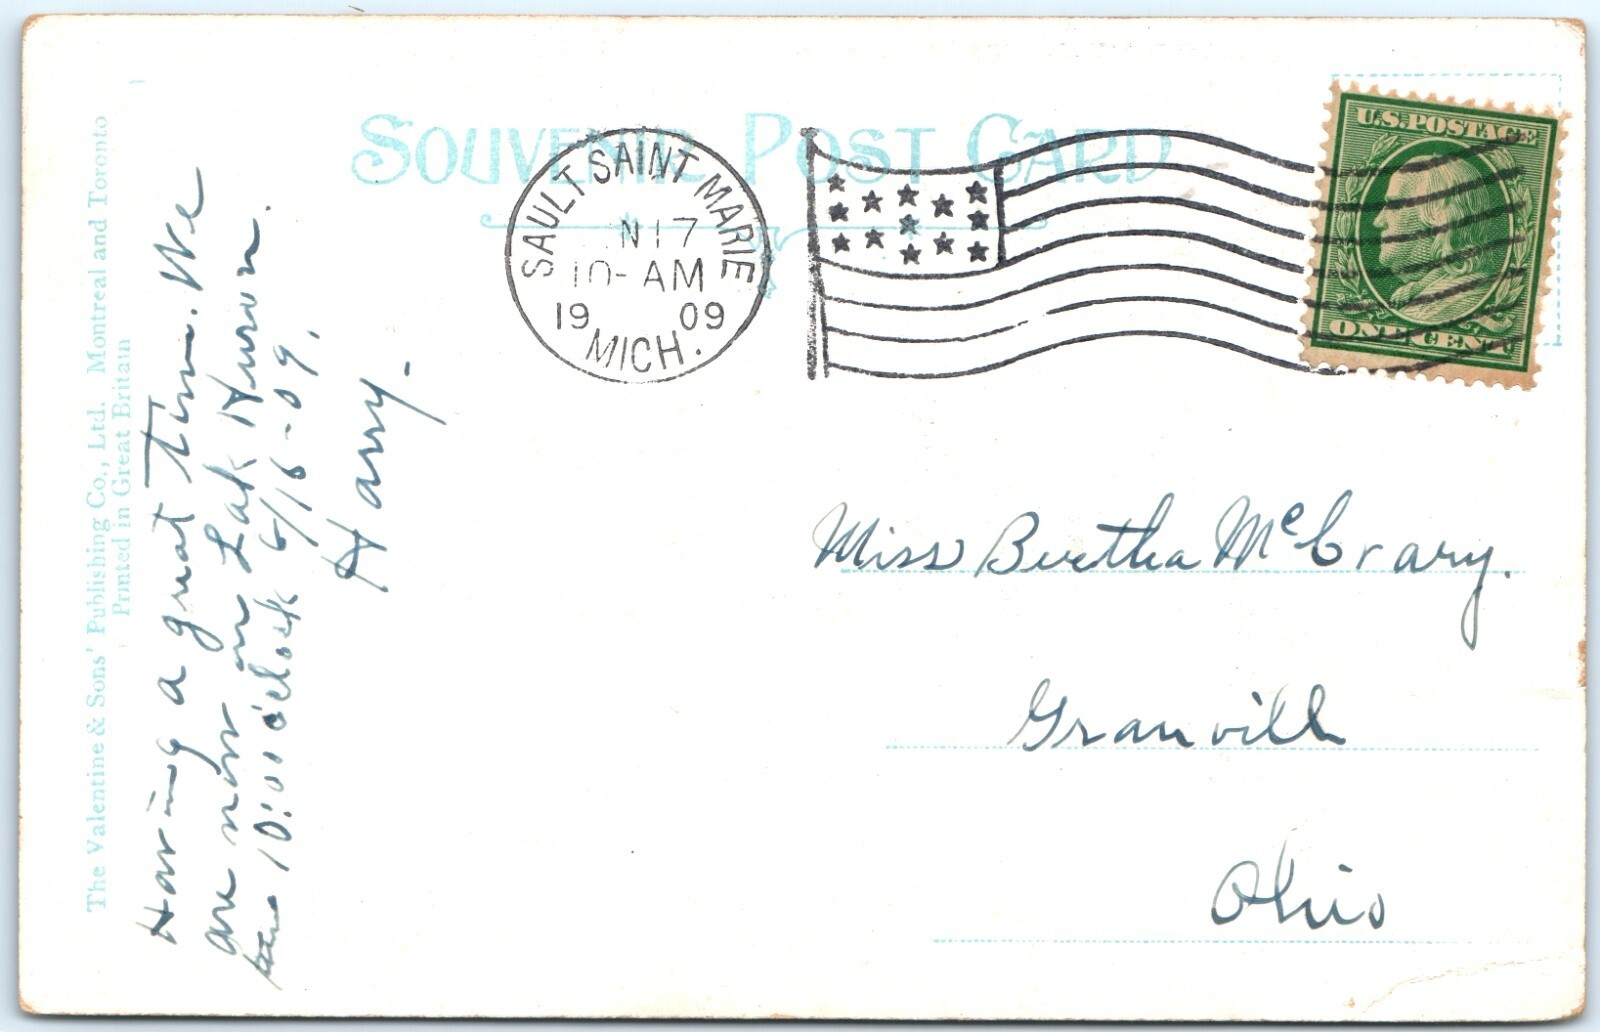 SOUVENIR POST CARD
SAULT SAINT MARIE
N 17
10-AM
19 09
MICH.
U.S. POSTAGE
ONE CENT
The Valentine & Sons' Publishing Co., Ltd. Montreal and Toronto
Printed in Great Britain
Having a great time. We
are now on Lake Huron.
10:00 o'clock 6/16-09.
Harry.
Miss Bertha McCrary.
Granville
Ohio